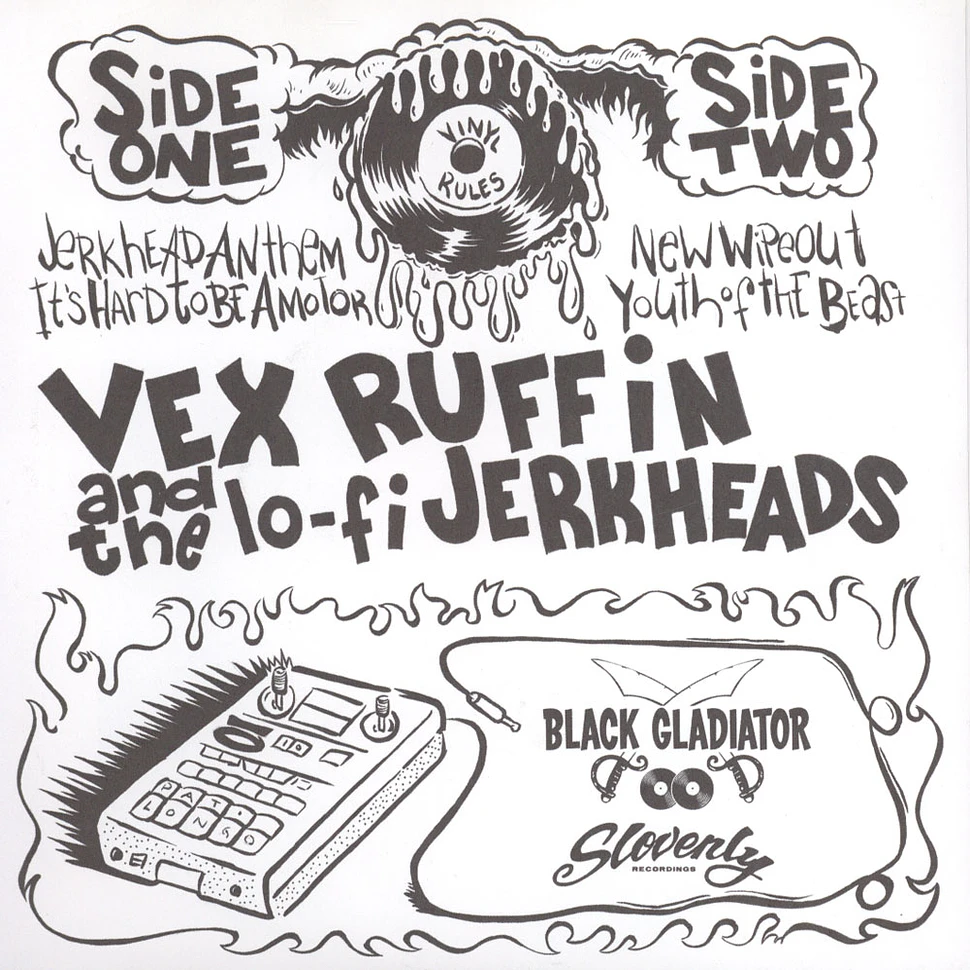 SiDE
ONE
VINYL
RULES
SiDE
TWO
JerkhEAD ANthEM
It's HArD to BE A MOtOR
New WipeOut
Youth of thE BEAst
VEX RUFFiN
and
the lo-fi JERKHEADS
PATi
LONSO
BLACK GLADIATOR
Slovenly
RECORDINGS